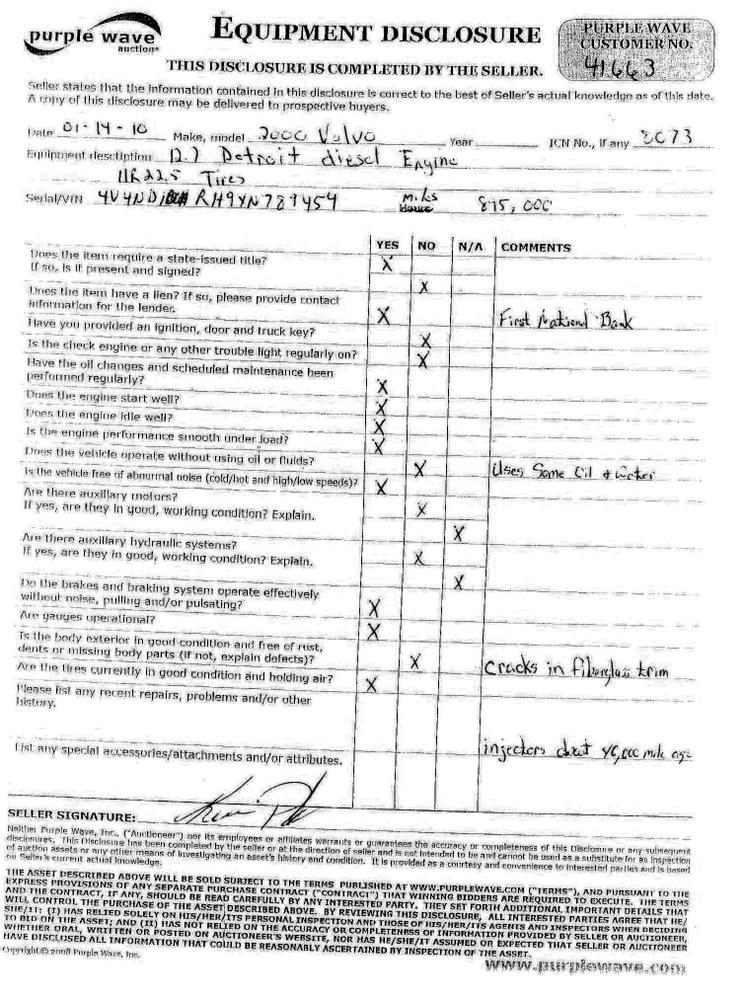 purple wave
auction®
EQUIPMENT DISCLOSURE
THIS DISCLOSURE IS COMPLETED BY THE SELLER.
PURPLE WAVE
CUSTOMER NO.
41663
Seller states that the information contained in this disclosure is correct to the best of Seller's actual knowledge as of this date.
A copy of this disclosure may be delivered to prospective buyers.
Date 01-14-10 Make, model 2000 Volvo Year ICN No., if any 2C73
Equipment description 12.7 Detroit diesel Engine
11R22.5 Tires
Serial/VIN RH9YN789459 Miles 815,000
YES NO N/A COMMENTS
Does the item require a state-issued title? X
If so, is it present and signed?
X
Does the item have a lien? If so, please provide contact
information for the lender. X First National Bank
Have you provided an ignition, door and truck key?
X
Is the check engine or any other trouble light regularly on? X
Have the oil changes and scheduled maintenance been
performed regularly? X
Does the engine start well? X
Does the engine idle well? X
Is the engine performance smooth under load? X
Does the vehicle operate without using oil or fluids? X Uses Some Oil & water
Is the vehicle free of abnormal noise (cold/hot and high/low speeds)? X
Are there auxiliary motors?
If yes, are they in good, working condition? Explain. X
X
Are there auxiliary hydraulic systems?
If yes, are they in good, working condition? Explain. X
X
Do the brakes and braking system operate effectively
without noise, pulling and/or pulsating? X
Are gauges operational? X
Is the body exterior in good condition and free of rust,
dents or missing body parts (if not, explain defects)? X Cracks in fiberglass trim
Are the tires currently in good condition and holding air? X
Please list any recent repairs, problems and/or other
history.
injectors about 40,000 mile ago
List any special accessories/attachments and/or attributes.
SELLER SIGNATURE:
Neither Purple Wave, Inc., ("Auctioneer") nor its employees or affiliates warrants or guarantees the accuracy or completeness of this Disclosure or any subsequent
disclosures. This Disclosure has been completed by the seller or at the direction of seller and is not intended to be and cannot be used as a substitute for as inspection
of auction assets or any other means of investigating an asset's history and condition. It is provided as a courtesy and convenience to interested parties and is based
on Seller's current actual knowledge.
THE ASSET DESCRIBED ABOVE WILL BE SOLD SUBJECT TO THE TERMS PUBLISHED AT WWW.PURPLEWAVE.COM ("TERMS"), AND PURSUANT TO THE
EXPRESS PROVISIONS OF ANY SEPARATE PURCHASE CONTRACT ("CONTRACT") THAT WINNING BIDDERS ARE REQUIRED TO EXECUTE. THE TERMS
AND THE CONTRACT, IF ANY, SHOULD BE READ CAREFULLY BY ANY INTERESTED PARTY. THEY SET FORTH ADDITIONAL IMPORTANT DETAILS THAT
WILL CONTROL THE PURCHASE OF THE ASSET DESCRIBED ABOVE. BY REVIEWING THIS DISCLOSURE, ALL INTERESTED PARTIES AGREE THAT HE/
SHE/IT: (I) HAS RELIED SOLELY ON HIS/HER/ITS PERSONAL INSPECTION AND THOSE OF HIS/HER/ITS AGENTS AND INSPECTORS WHEN DECIDING
TO BID ON THE ASSET; AND (II) HAS NOT RELIED ON THE ACCURACY OR COMPLETENESS OF INFORMATION PROVIDED BY SELLER OR AUCTIONEER,
WHETHER ORAL, WRITTEN OR POSTED ON AUCTIONEER'S WEBSITE, NOR HAS HE/SHE/IT ASSUMED OR EXPECTED THAT SELLER OR AUCTIONEER
HAVE DISCLOSED ALL INFORMATION THAT COULD BE REASONABLY ASCERTAINED BY INSPECTION OF THE ASSET.
Copyright © 2008 Purple Wave, Inc.
www.purplewave.com